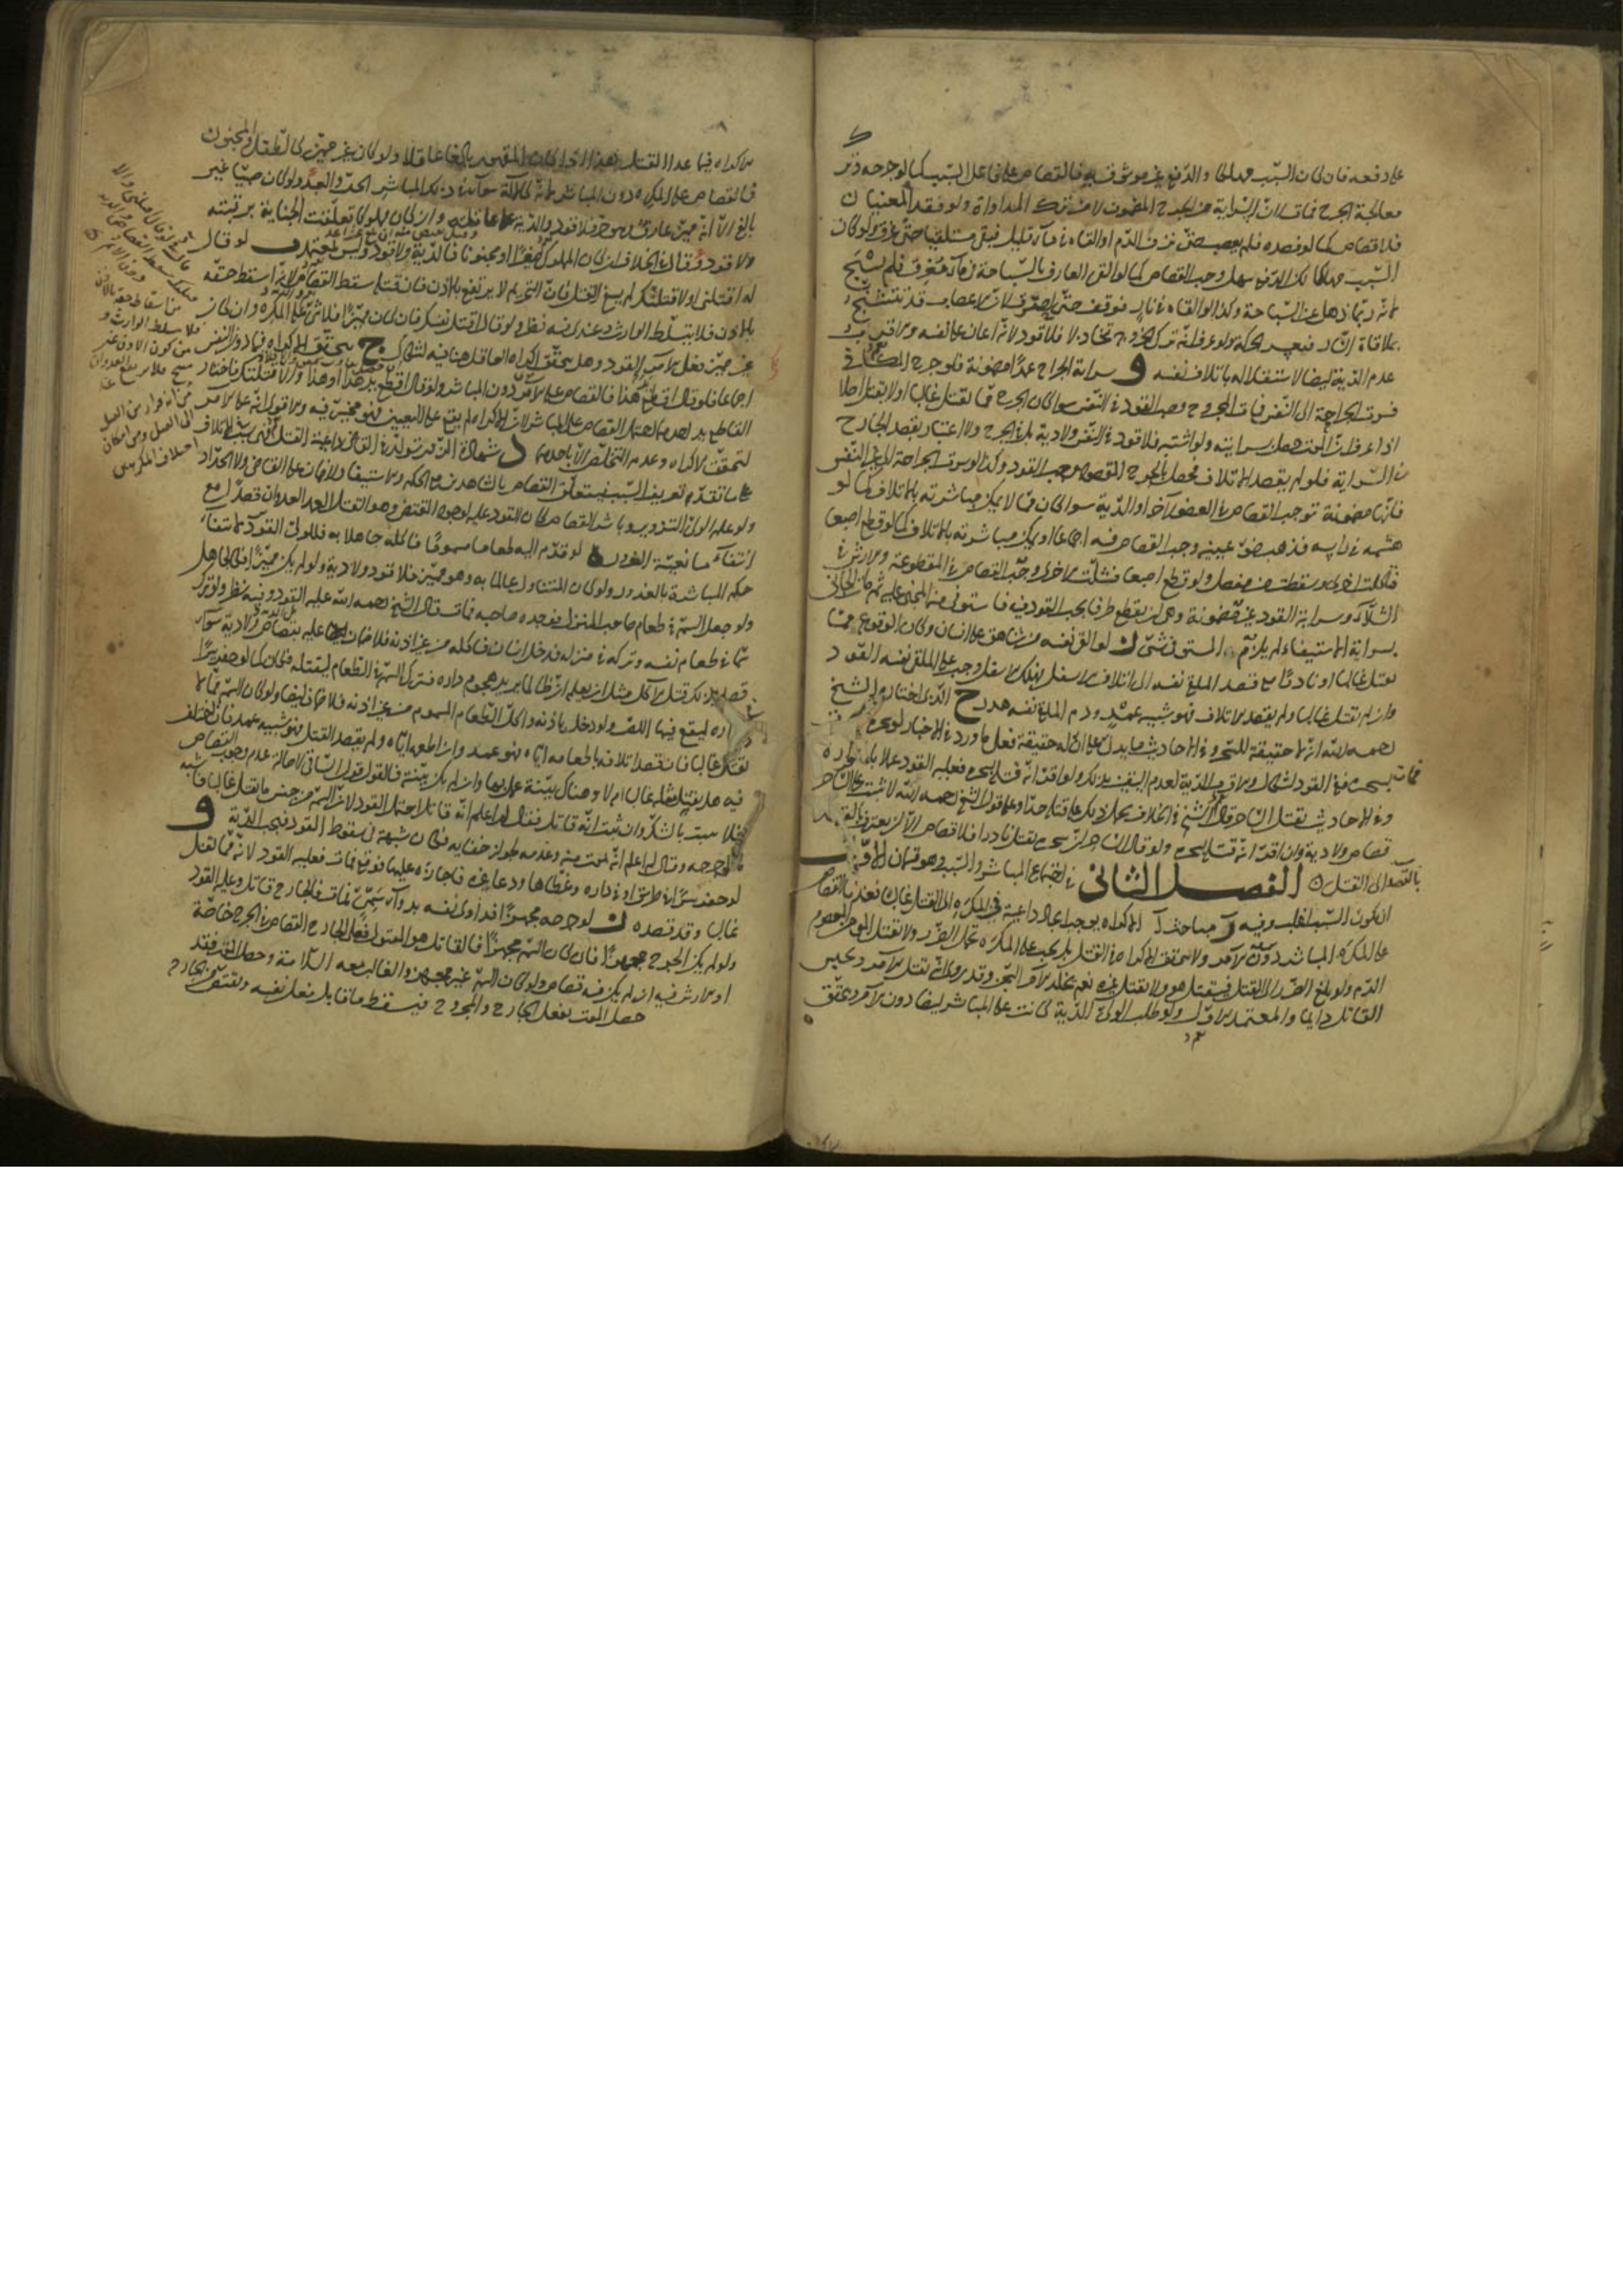 على دفعه فان كان السبب مهلكا والدفع غير موثوق به فالقصاص على فاعل السبب كما لو جرحه وترك
معالجة الجرح فمات لان السراية من الجرح المضمون لا من ترك المداواة ولو فقد المعنيان
فلا قصاص كما لو فصده فلم يعصبه حتى نزف الدم او القاه في ماء قليل فبقى مستلقيا حتى غرق ولو كان
السبب مهلكا لكن الدفع سهل وجب القصاص كما لو القى العارف بالسباحة في ماء مغرق فلم يسبح
لانه ربما ذهل عن السباحة وكذا لو القاه في نار فوقف حتى احترق لان الاعصاب قد تتشنج
بملاقاة النار فيعسر الحركة ولو عرف انه ترك الخروج تخاذلا فلا قود لانه اعان على نفسه والاقرب
عدم الدية ايضا لاستقلاله باتلاف نفسه و سراية الجراح عمدا مضمونة فلو جرح المكافى
فسرت الجراحة الى النفس فمات المجروح وجب القود في النفس سواء كان الجرح مما يقتل غالبا او لا يقتل اصلا
اذا عرف ان الموت حصل بسرايته ولو اشتبه فلا قود في النفس ولا دية بل في الجرح ولا اعتبار بقصد الجارح
في السراية فلو لم يقصد الاتلاف فحصل بالجرح المقصود وجب القود وكذا لو سرت الجراحة الى غير النفس
فانها مضمونة توجب القصاص في العضو الآخر او الدية سواء كان مما لا يمكن مباشرته بالاتلاف كما لو
هشمه في راسه فذهب ضوء عينيه وجب القصاص فيه اجماعا او يمكن مباشرته بالاتلاف كما لو قطع اصبعا
فتاكلت اخرى وسقطت من مفصل ولو قطع اصبعا فشلت الاخرى وجب القصاص في المقطوعة والارش في
الشلاء وسراية القود غير مضمونة وهي ان يقطع طرفا يجب القود فيه فاستوفى منه المجنى عليه ثم مات الجاني
بسراية الاستيفاء لم يلزم المستوفي شيء ز لو القى نفسه من شاهق على انسان وكان الوقوع مما
يقتل غالبا او نادرا مع قصد الملقي نفسه الى اتلاف الاسفل فهلك الاسفل وجب على الملقي نفسه القود
وان لم يقتل غالبا ولم يقصد الاتلاف فهو شبيه عمد ودم الملقي نفسه هدر ح الذي اختاره الشيخ
رحمه الله انه لا حقيقة للسحر وفي الاحاديث ما يدل على ان له حقيقة فعلى ما ورد في الاخبار لو سحره
فمات بسحره ففي القود اشكال والاقرب الدية لعدم اليقين بذلك ولو اقر انه قتله بسحره فعليه القود عملا باقراره
وفي الاحاديث يقتل الساحر قال الشيخ في الخلاف يحمل ذلك على قتله حدا وعلى قول الشيخ رحمه الله لا يثبت بحال
قصاص ولا دية وان اقر انه قتله بسحره ولو قال الساحر ان سحري يقتل نادرا فلا قصاص الا ان يعترف
بالقصد الى القتل الفصل الثاني في اجتماع المباشر والسبب وهو قسمان الاول
ان يكون السبب اغلب وفيه و مباحث آ الاكراه يوجب داعية في المكره الى القتل غالبا فعندنا القصاص
على المكره المباشر دون الآمر ولا يتحقق الاكراه في القتل بل يجب على المكره تحمل الضرر ولا يقتل المعصوم
الدم ولو بلغ الضرر الى القتل فيقتل هو ولا يقتل غيره نعم يخلد الآمر السجن وقد روى ان يقتل الآمر ويحبس
القاتل دايما والمعتمد الاول ولو طلب الولي الدية كانت على المباشر ايضا دون الآمر ويتحقق
الاكراه فيما عدا القتل هذا اذا كان المقهور بالغا عاقلا ولو كان غير مميز كالطفل والمجنون
فالقصاص على المكره دون المباشر لانه كالآلة سواء في ذلك المباشر الحر والعبد ولو كان صبيا غير
بالغ الا انه مميز عارف وهو حر فلا قود والدية على عاقلته وان كان مملوكا تعلقت الجناية برقبته
ولا قود وقال في الخلاف ان كان المملوك صغيرا او مجنونا فالدية ولا قود وليس بمعتمد ب لو قال
له اقتلني او لاقتلنك لم يسغ القتل فان اثم لا يرتفع بالاذن فان قتله سقط القصاص لانه اسقط حقه
بالاذن فلا يتسلط الوارث وعندي فيه نظر ولو قال اقتل نفسك فان كان مميزا فلا شيء على المكره وان كان
غير مميز فعلى الآمر القود وهل يتحقق اكراه العاقل هنا فيه اشكال ج يتحقق الاكراه فيما دون النفس
اجماعا فلو قال اقطع يد هذا فالقصاص على الآمر دون المباشر ولو قال اقطع يد هذا او هذا والا قتلتك فاختار
القاطع يد احدهما احتمل القصاص على المباشر لان الاكراه لم يقع على التعيين فهو مخير فيه والاقوى انه على الآمر
لتحقق الاكراه وعدم التخلص الا باحدهما د شهادة الزور تولد في القاضي داعية القتل
على ما تقدم في تعريف السبب فيتعلق القصاص بالشاهدين مع الحكم والاستيفاء ولا ضمان على القاضي ولا الحداد
ولو علم الولي التزوير وباشر القصاص كان القود عليه لوجود المقتضي وهو القتل العمد العدوان قصدا مع
انتفاء مانعية الغرور ه لو قدم اليه طعاما مسموما فاكله جاهلا به فللولي القود لانتفاء
حكم المباشرة بالغرور ولو كان المتناول عالما به وهو مميز فلا قود ولا دية ولو لم يكن مميزا فكالجاهل
ولو جعل السم في طعام صاحب المنزل فوجده صاحبه فمات قال الشيخ رحمه الله عليه القود وفيه نظر ولو ترك
سما في طعام نفسه وتركه في منزله فدخل انسان فاكله من غير اذنه فلا ضمان عليه بقصاص ولا دية سواء
قصد بذلك قتل الآكل مثل ان يعلم ان ظالما يريد هجوم داره فترك السم في الطعام ليقتله فكان كما لو حفر بئرا
في داره ليقع فيها اللص ولو دخل باذنه واكل الطعام المسموم من غير اذنه فلا ضمان ايضا ولو كان السم مما لا
يقتل غالبا فان قصد اتلافه باطعامه اياه فهو عمد وان اطعمه اياه ولم يقصد القتل فهو شبيه عمد فان اختلف
فيه هل يقتل مثله غالبا ام لا وهناك بينة عمل بها وان لم يكن بينة فالقول قول الساقي لاصالة عدم وجوب القصاص
فلا يثبت بالشك وان ثبت انه قاتل فقال لم اعلم انه قاتل احتمل القود لان السم من جنس ما يقتل غالبا فاشبه
ما لو جرحه وقال لم اعلم انه يموت منه وعدمه لجواز خفائه فكان شبهة في سقوط القود فيجب الدية و
لو حفر بئرا في طريق او في داره وغطاها ودعا غيره فاجازه عليها فوقع فمات فعليه القود لانه مما يقتل
غالبا وقد قصده ز لو جرحه مجهزا فداوى نفسه بدواء سمي فمات فالجارح قاتل وعليه القود
ولو لم يكن الجرح مجهزا فان كان السم مجهزا فالقاتل هو المقتول فعلى الجارح القصاص في الجرح خاصة
او الارش فيه ان لم يكن فيه قصاص ولو كان السم غير مجهز والغالب معه السلامة وحصل التلف فقد
حصل الموت بفعل الجارح والمجروح فيسقط ما قابل فعل نفسه ويقتص من الجارح